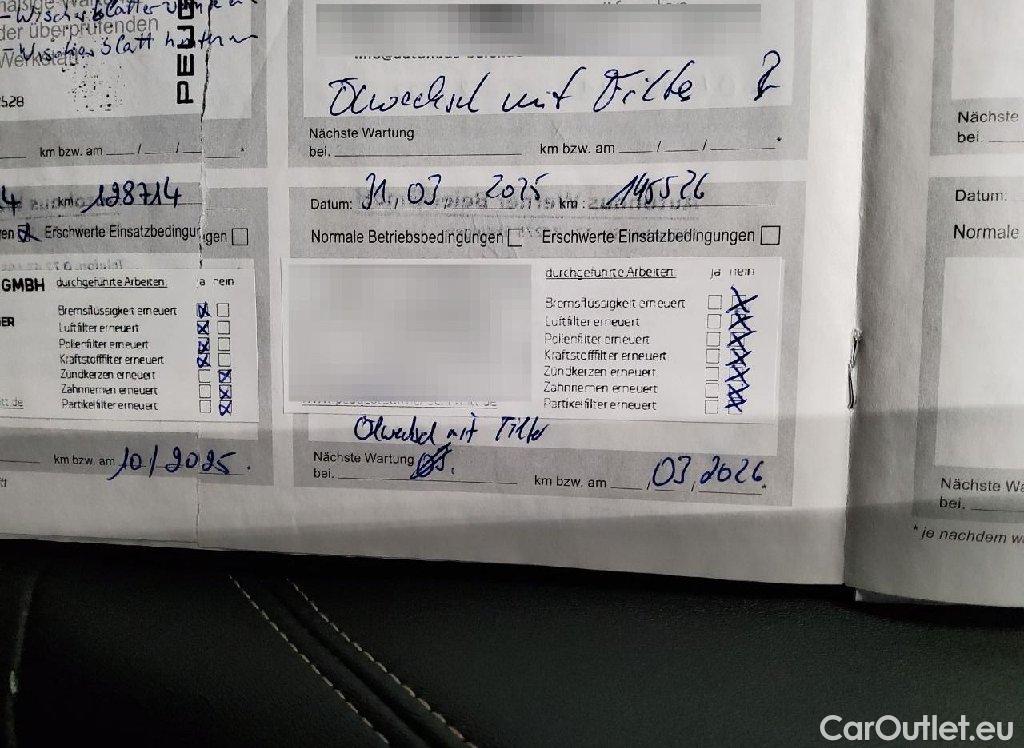 - Wischerblätter vorne
der überprüfenden
- Wischerblatt hinten
Werkstatt
PEUG
2528
km bzw. am ___/___/___*
km: 128714
Erschwerte Einsatzbedingungen
GMBH
durchgeführte Arbeiten: ja nein
Bremsflüssigkeit erneuert
Luftfilter erneuert
Pollenfilter erneuert
Kraftstofffilter erneuert
Zündkerzen erneuert
Zahnriemen erneuert
Partikelfilter erneuert
km bzw. am 10/2025.
Ölwechsel mit Filter
Nächste Wartung
bei. km bzw. am ___/___/___*
Datum: 31.03 2025 km: 145526
Normale Betriebsbedingungen Erschwerte Einsatzbedingungen
durchgeführte Arbeiten: ja nein
Bremsflüssigkeit erneuert
Luftfilter erneuert
Pollenfilter erneuert
Kraftstofffilter erneuert
Zündkerzen erneuert
Zahnriemen erneuert
Partikelfilter erneuert
Ölwechsel mit Filter
Nächste Wartung
bei. km bzw. am 03.2026.
Nächste
bei.
Datum:
Normale
Nächste Wa
bei.
* je nachdem w
CarOutlet.eu